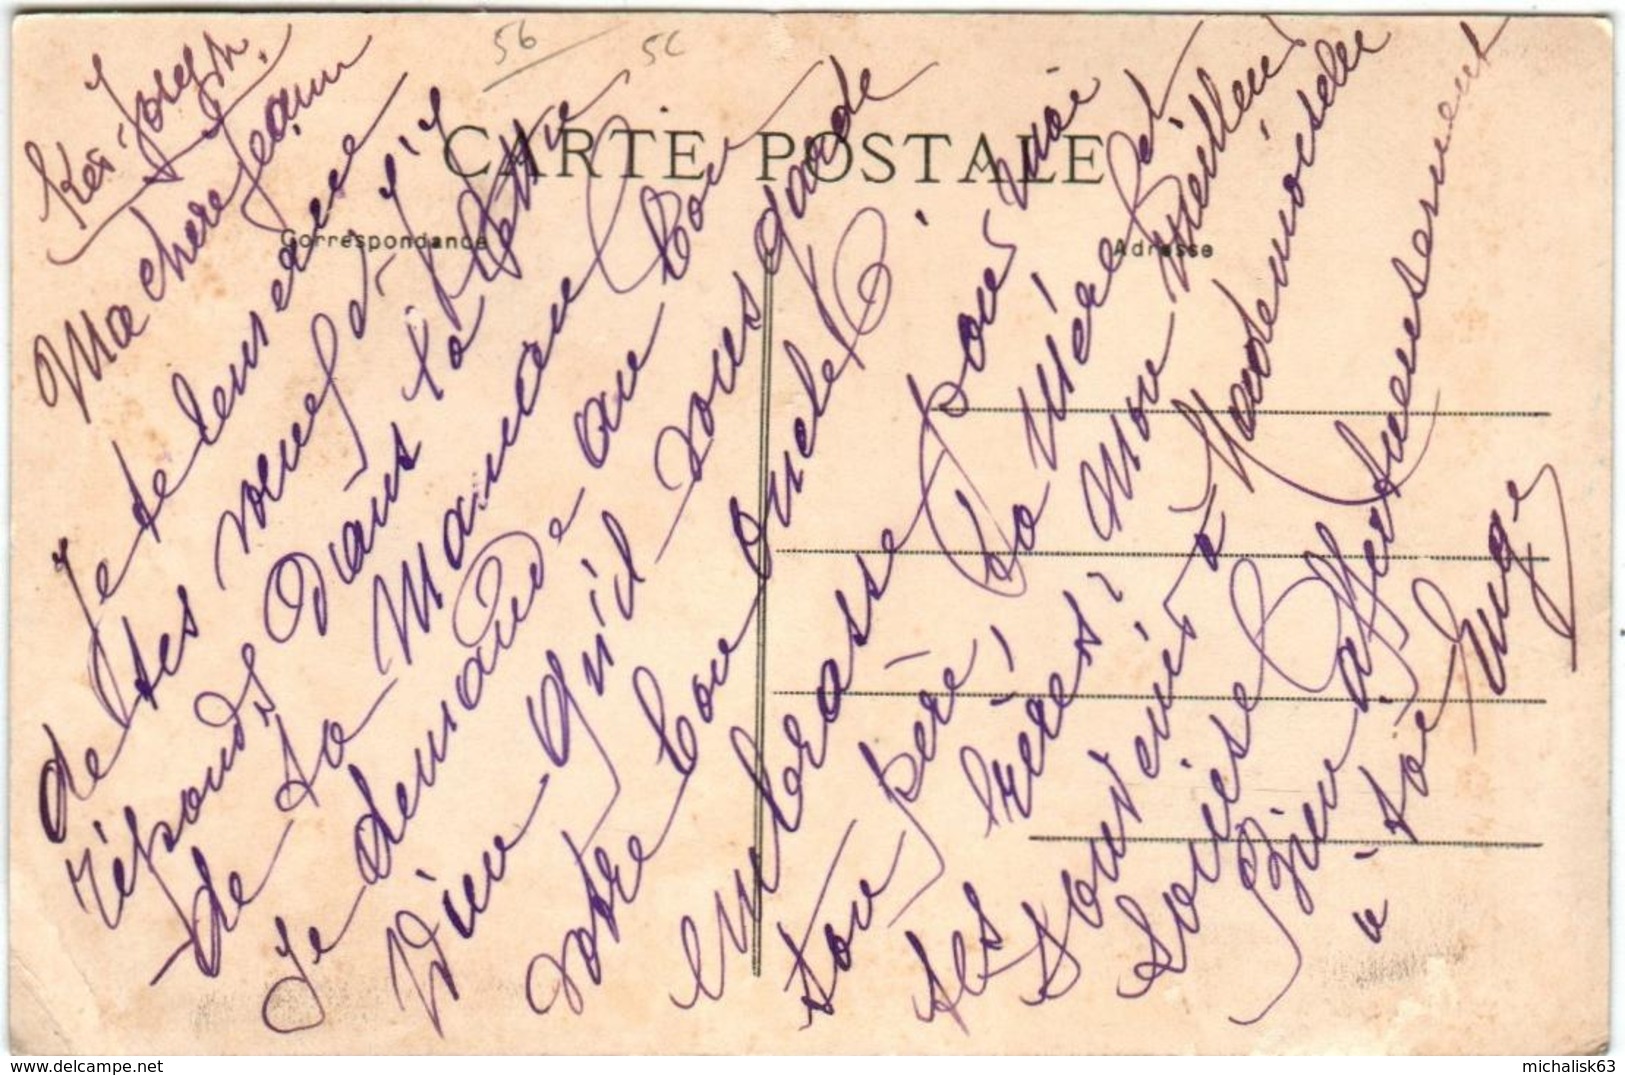 56
5C
Ker-Joseph.
CARTE POSTALE
Correspondance
Adresse
Ma chère Jeanne
Je te remercie
de tes nouvelles
réponds dans la lettre
de ta Maman
Je demande au bon
Dieu qu'il vous garde
votre bon oncle!
embrasse pour moi
ton père! ta Mère et
tes frères! Mon meilleur
souvenir à Mademoiselle
Louise
Bien affectueusement
à toi
delcampe.net
michalisk63